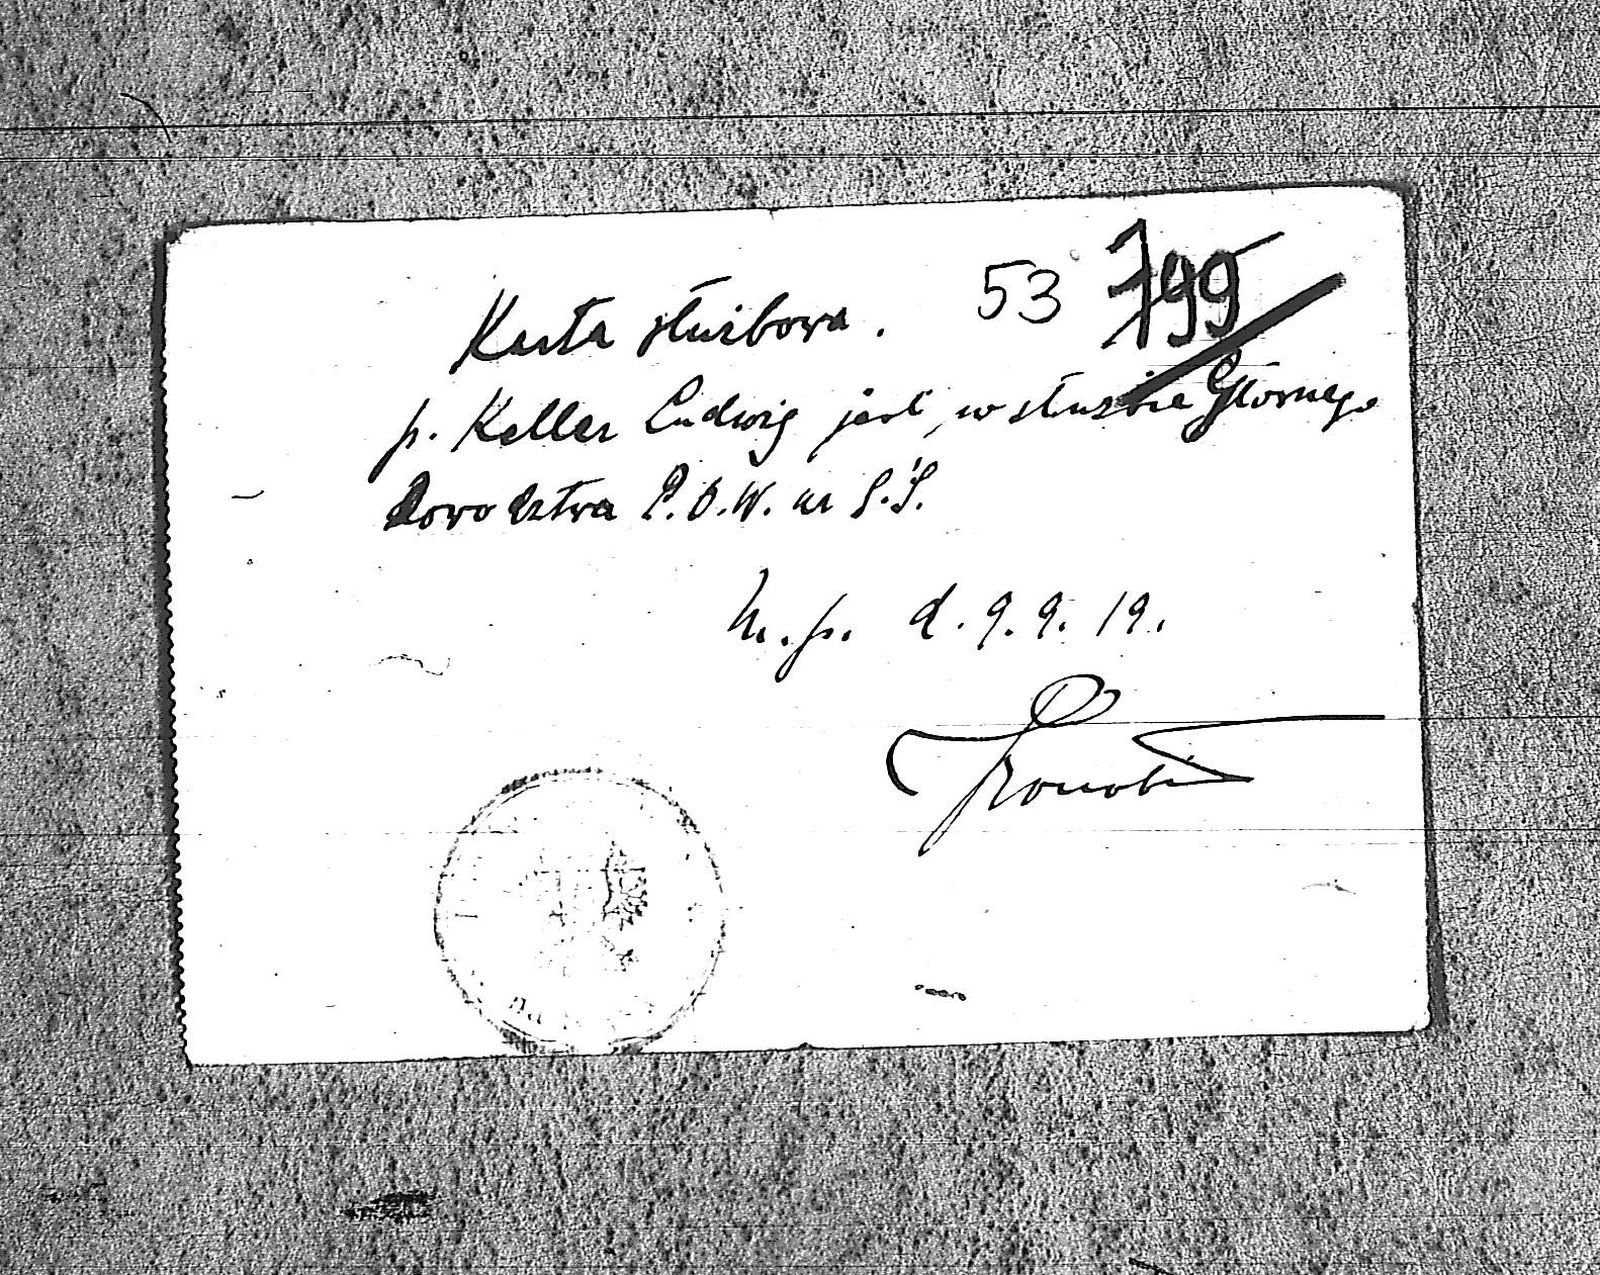 53 799
Karta służbowa.
p. Keller Ludwig jest w służbie Głównego
Dowodztwa P.O.W. na G.Ś.
M.p. d. 9.9.19.
na